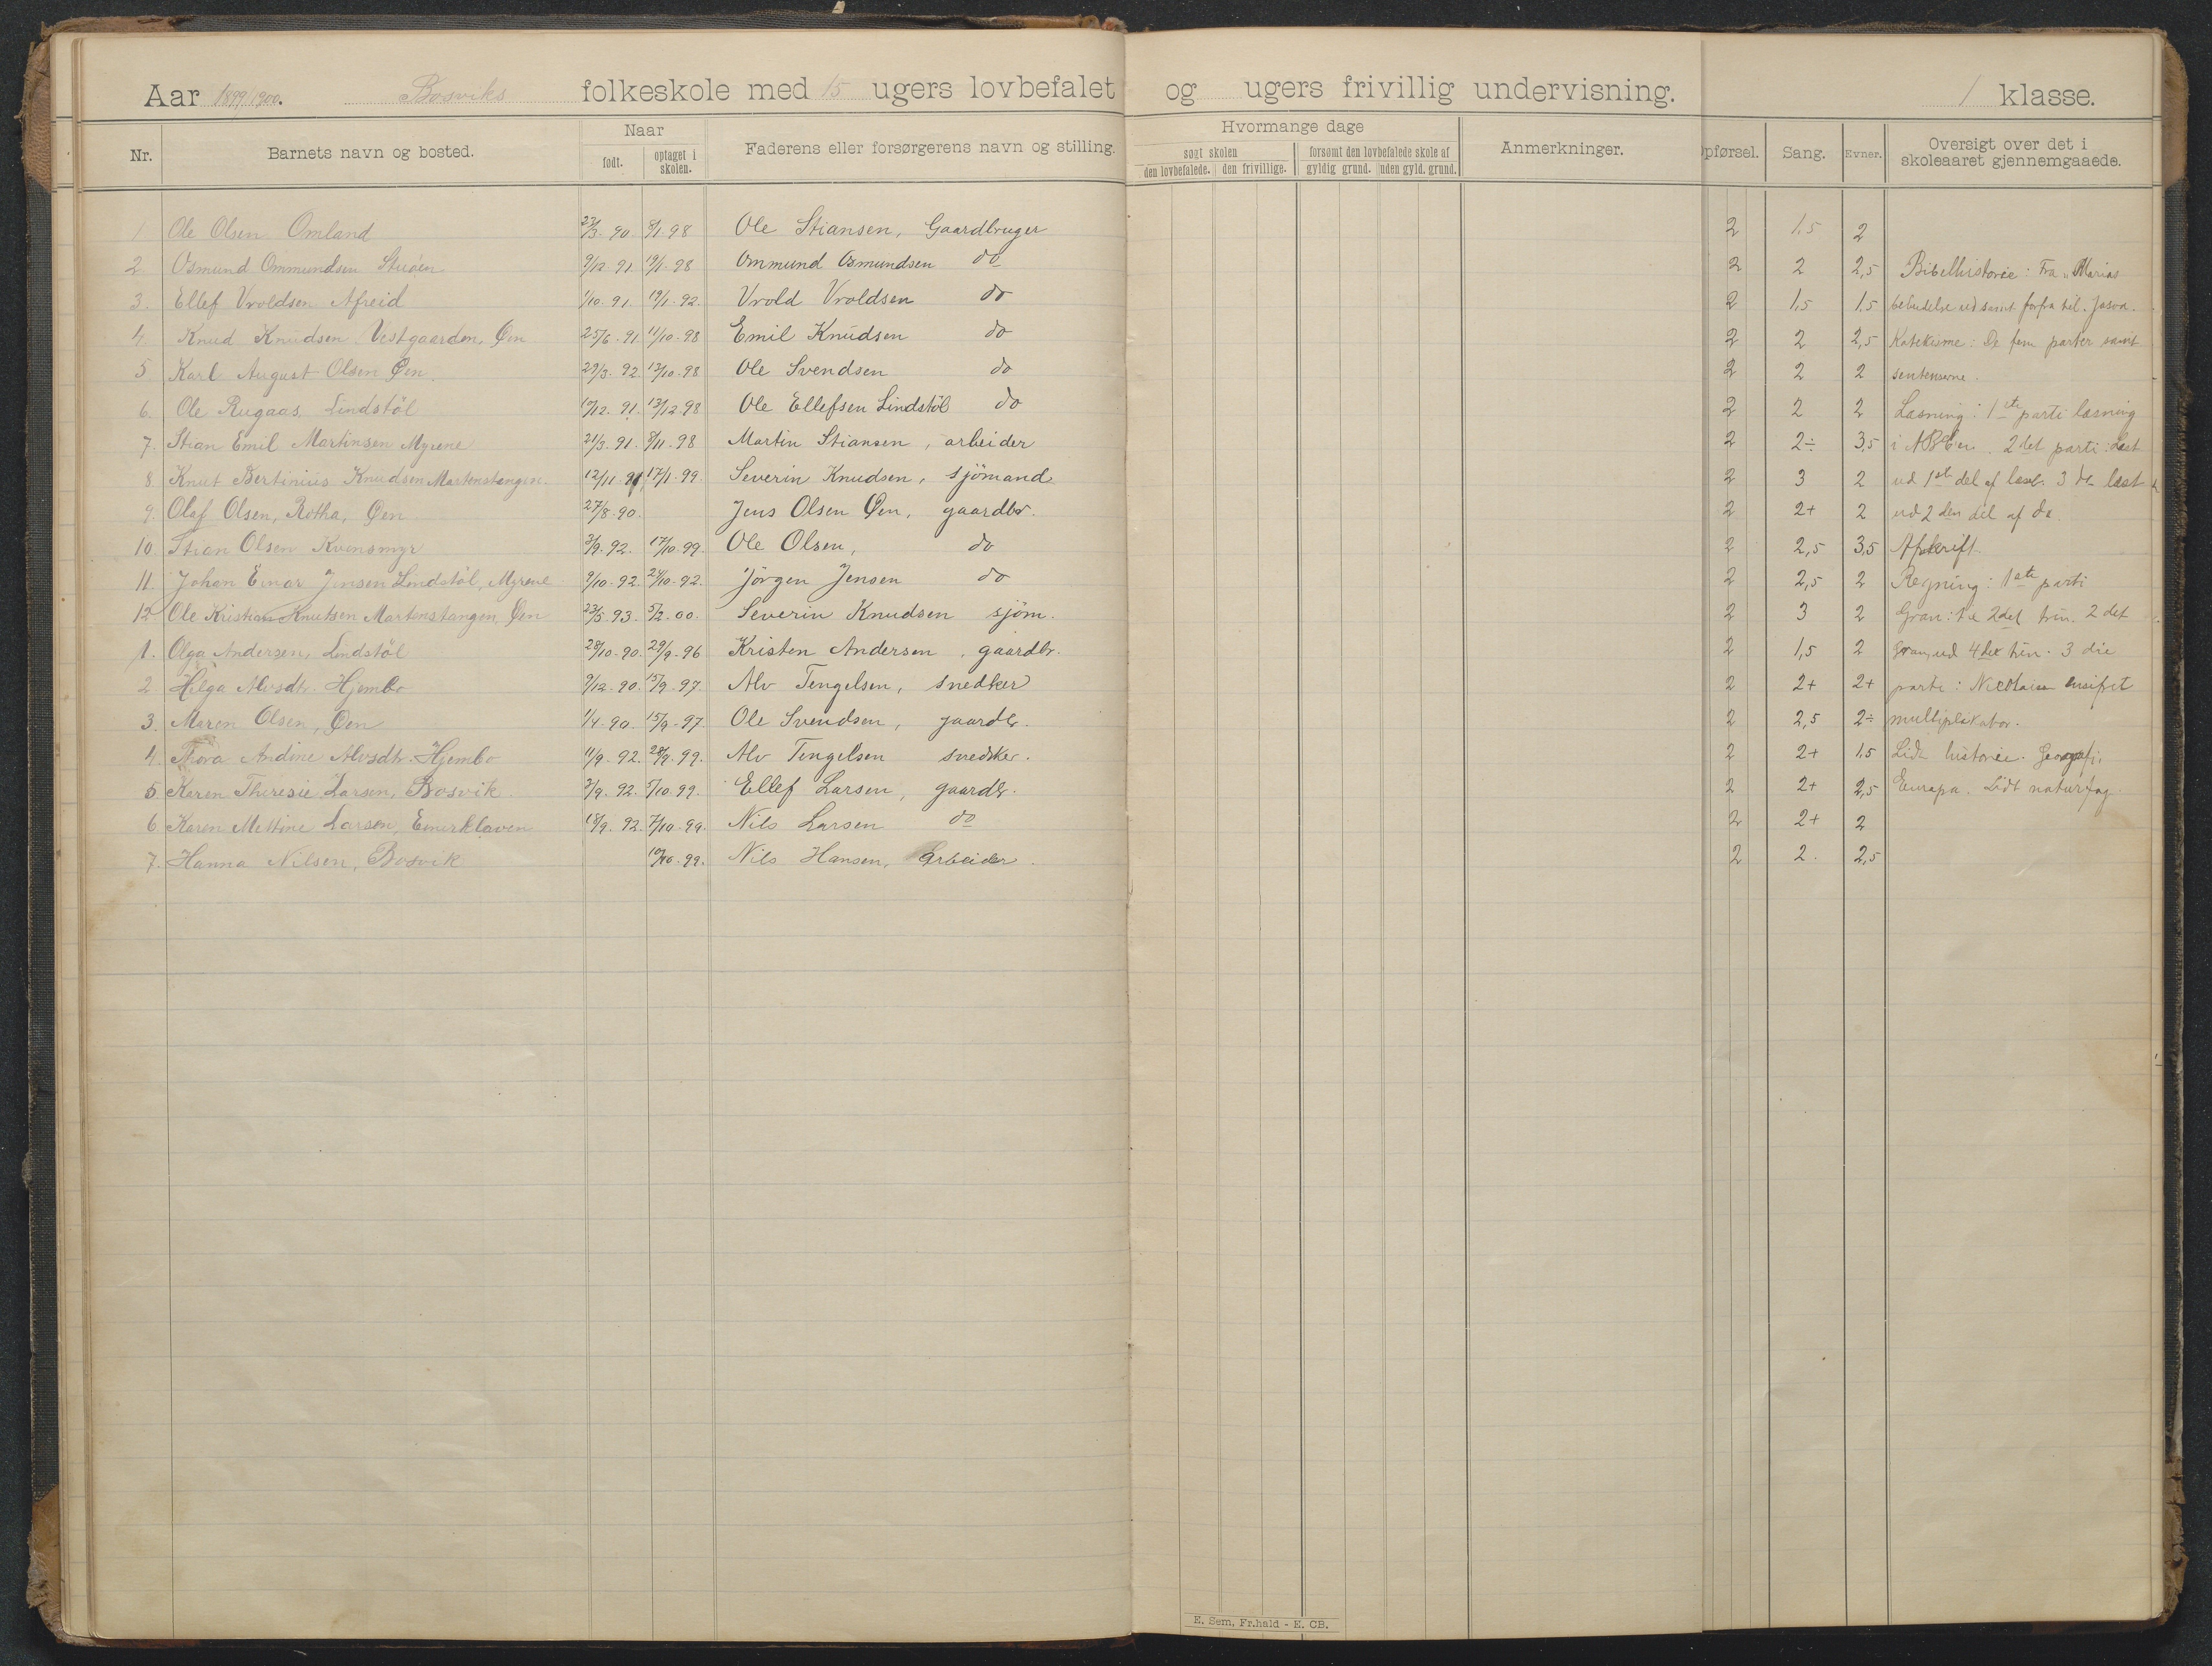 Aar 1899/1900. Bosviks folkeskole med 15 ugers lovbefalet og ugers frivillig undervisning. 1 klasse.
Nr. Barnets navn og bosted. Naar født. optaget i skolen. Faderens eller forsørgerens navn og stilling. Hvormange dage søgt skolen den lovbefalede. den frivillige. forsømt den lovbefalede skole af gyldig grund. uden gyld. grund. Anmerkninger. pførsel. Sang. Evner. Oversigt over det i skoleaaret gjennemgaaede.
1 Ole Olsen Omland 23/3. 90. 8/1. 98 Ole Stiansen, Gaardbruger 2 1.5 2
2. Osmund Ommundsen 9/12. 91. 19/1. 98 Ommund Osmundsen do 2 2 2,5 Bibelhistorie: Fra "Marias
3. Ellef Vroldsen Afreid 1/10. 91. 19/1. 92. Vrold Vroldsen do 2 1,5 1.5 bebudelse ud samt forfra til Josva.
4. Knud Knudsen Vestgaarden, Øen 25/6. 91. 11/10. 98 Emil Knudsen do 2 2 2,5 Katekisme: De fem parter samt
5 Karl August Olsen Øen. 29/3. 92. 13/10. 98 Ole Svendsen do 2 2 2 sentenserne.
6. Ole Rugaas Lindstöl 10/12. 91. 13/12. 98 Ole Ellefsen Lindstöl do 2 2 2 Læsning: 1ste parti læsning
7. Stian Emil Martinsen Myrene 21/3. 91. 8/11. 98 Martin Stiansen, arbeider 2 2÷ 3,5 i ABCen. 2det parti: Læst
8. Knut Bertinius Knudsen Martenstangen. 12/11. 91. 17/1. 99. Severin Knudsen, sjömand 2 3 2 ud 1ste del af læseb. 3die læst
9. Olaf Olsen, Rotha, Øen 27/8. 90. Jens Olsen Øen, gaardbr. 2 2+ 2 ud 2den del af do.
10. Stian Olsen Kvensmyr 3/9. 92. 17/10. 99. Ole Olsen, do 2 2,5 3,5 Afskrift.
11. Johan Einar Jensen Lindstöl, Myrene 9/10. 92. 24/10. 92. Jörgen Jensen do 2 2,5 2 Regning: 1ste parti
12 Ole Kristian Knutsen Martenstangen, Øen 23/5. 93. 5/2. 00. Severin Knudsen sjöm. 2 3 2 Gran: 1ste 2det trin. 2det
1. Olga Andersen, Lindstöl 28/10. 90. 29/9. 96 Kristen Andersen, gaardbr. 2 1,5 2 Gran, ud 4det trin. 3die
2. Helga Alvsdtr. Hjembo 9/12. 90. 15/9. 97. Alv Tengelsen, snedker 2 2+ 2+ parti: Nicolaisen ensifret
3. Maren Olsen, Øen 1/4. 90. 15/9. 97. Ole Svendsen, gaardb. 2 2,5 2÷ multiplikator.
4. Thora Andine Alvsdtr. Hjembo 11/9. 92. 28/9. 99. Alv Tengelsen snedker. 2 2+ 1.5 Lidt historie. Geografi,
5 Karen Theresie Larsen, Bosvik. 3/9. 92. 5/10. 99. Ellef Larsen, gaardb. 2 2+ 2,5 Europa. Lidt naturfag.
6. Karen Mettine Larsen, Emerkleven 18/9. 92. 7/10. 99. Nils Larsen do 2 2+ 2
7. Hanna Nilsen, Bosvik 10/10. 99. Nils Hansen, arbeider. 2 2. 2,5
E. Sem, Fr.hald - E. CB.